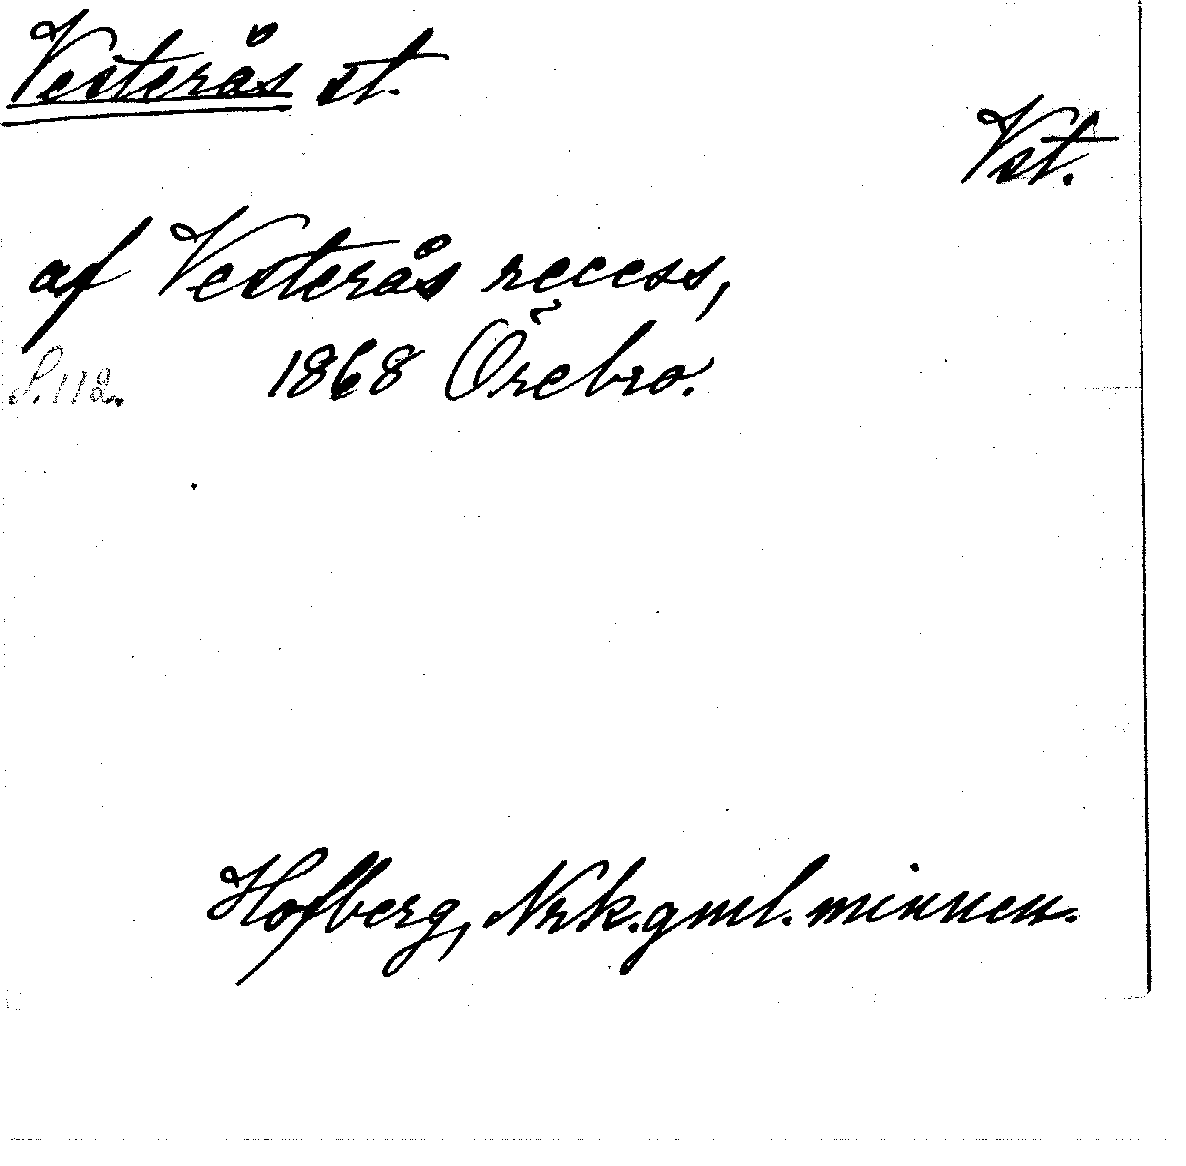 Vesterås st.
Vst.
af Vesterås recess,
S. 112. 1868 Örebro.
Hofberg, Nrk. gml. minnen.